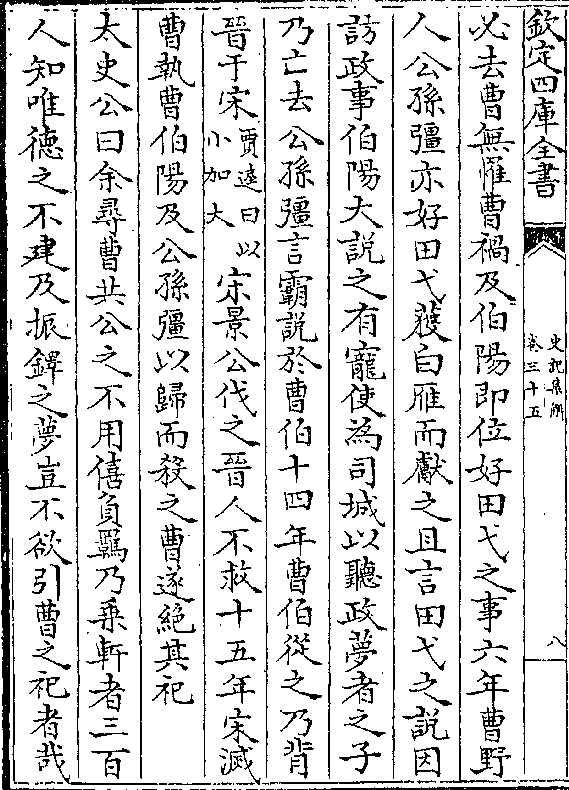 欽定四庫全書
史記集解
卷三十五
八
必去曹無懼曹禍及伯陽即位好田弋之事六年曹野
人公孫彊亦好田弋獲白雁而獻之且言田弋之說因
訪政事伯陽大說之有寵使為司城以聽政夢者之子
乃亡去公孫彊言霸說於曹伯十四年曹伯從之乃背
晉干宋賈逵曰以小加大宋景公伐之晉人不救十五年宋滅
曹執曹伯陽及公孫彊以歸而殺之曹遂絕其祀
太史公曰余尋曹共公之不用僖負羈乃乘軒者三百
人知唯德之不建及振鐸之夢豈不欲引曹之祀者哉